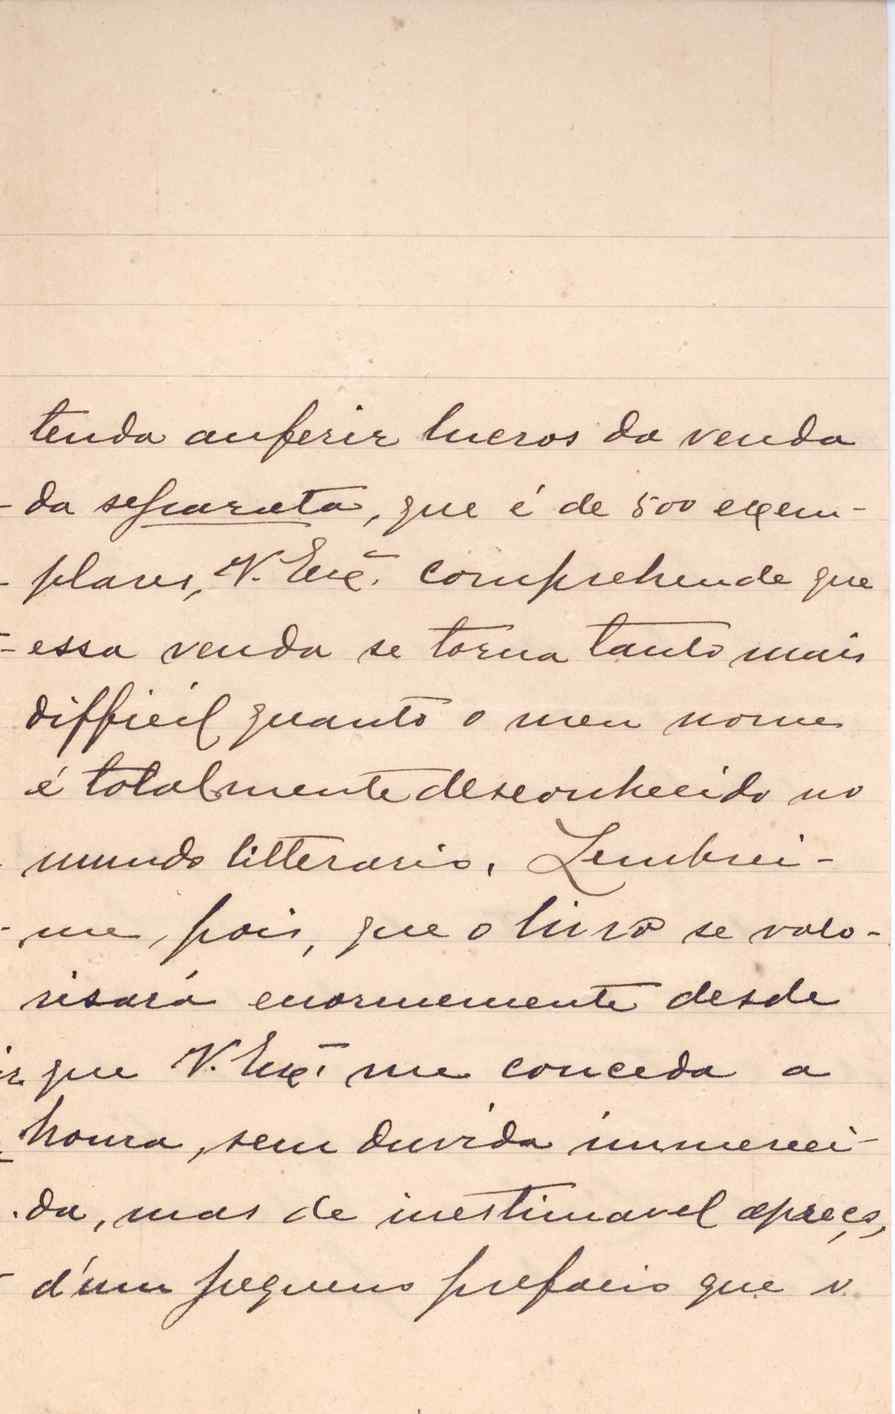 tenda auferir lucros da venda
da separata, que é de 500 exem-
plares, V. Exª. comprehende que
essa venda se torna tanto mais
difficil quanto o meu nome
é totalmente desconhecido no
mundo litterario. Lembrei-
me, pois, que o livro se valo-
risará enormemente desde
que V. Exª. me conceda a
honra, sem duvida immereci-
da, mas de inestimavel apreço,
d'um pequeno prefacio que v